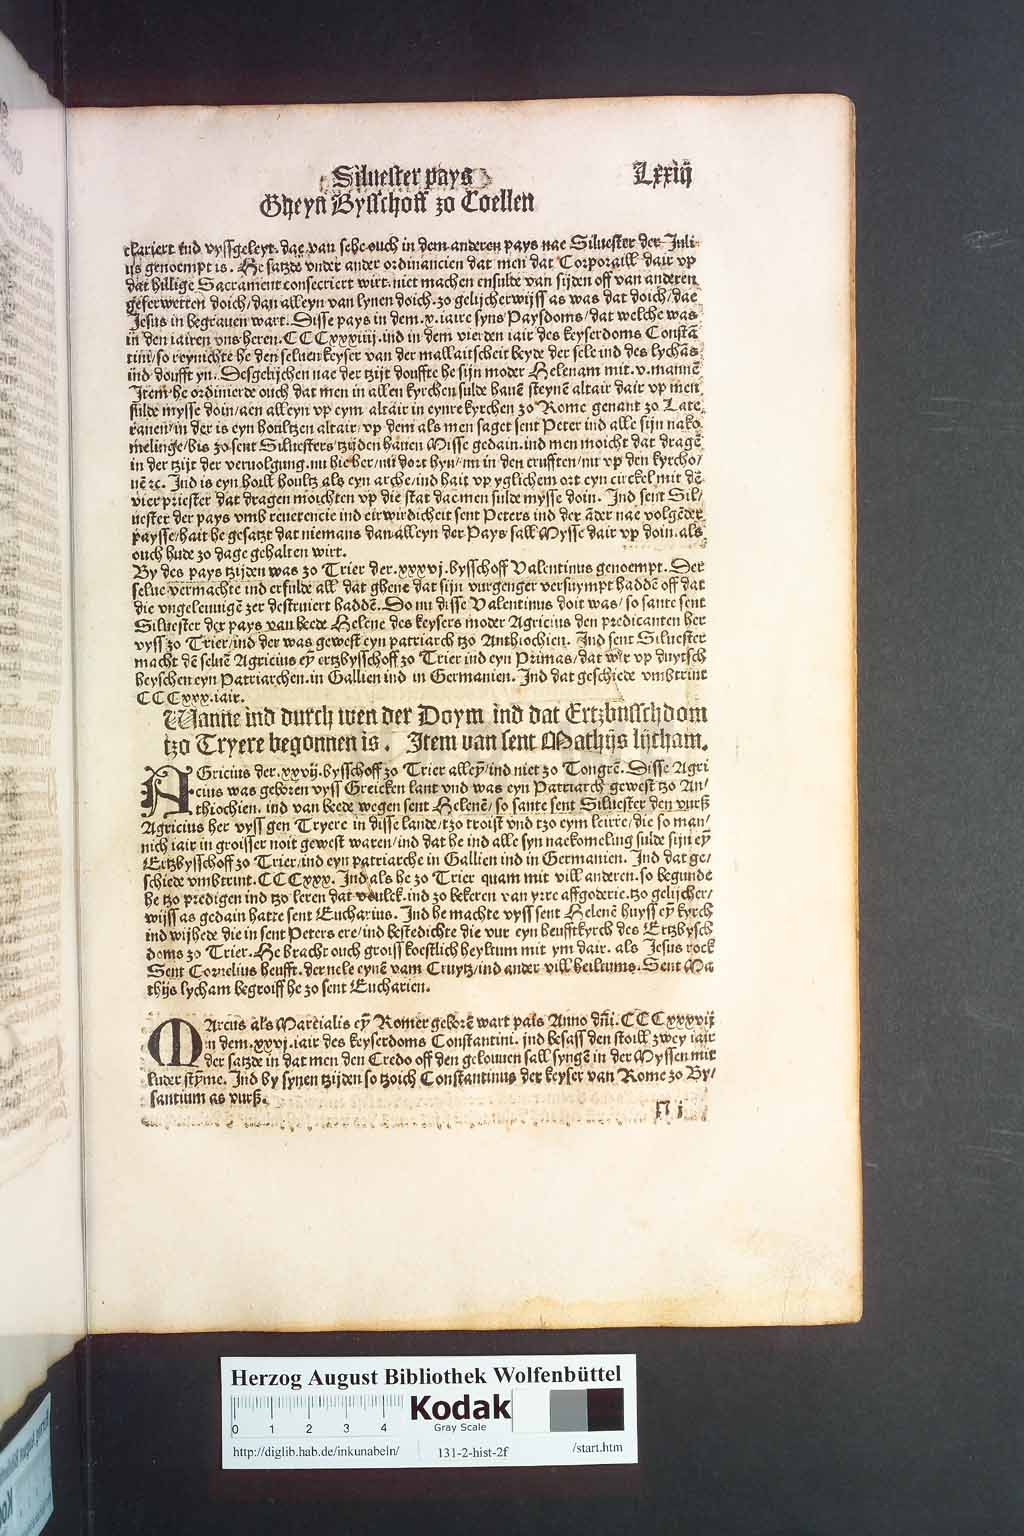 Siluester pays
Lxxiij
Gheyn Bysschoff zo Coellen
clariert ind vyssgeleyt. dae van sehe ouch in dem anderen pays nae Siluester der Juli⸗
ijs genoempt is. He satzde vnder ander ordinancien dat men dat Corporaill dair vp
dat hillige Sacrament consecriert wirt. niet machen ensulde van sijden off van anderen
geferwetten doich/ dan alleyn van lynen doich. zo gelijcherwijss as was dat doich/ dae
Jesus in begrauen wart. Disse pays in dem .x. iaire syns Paysdoms/ dat welche was
in den iairen vns heren. CCCxxxiiij. ind in dem vierden iair des keyserdoms Constā
tini/ so reynichte he den seluen keyser van der mallaitscheit beyde der sele ind des lychās
ind doufft yn. Desgelijchen nae der tzijt douffte he sijn moder Helenam mit .v. mannē
Item he ordinierde ouch dat men in allen kyrchen sulde hauē steynē altair dair vp men
sulde mysse doin/ aen alleyn vp eym altair in eynre kyrchen zo Rome genant zo Late⸗
ranen/ in der is eyn houltzen altair/ vp dem als men saget sent Peter ind alle sijn nako
melinge/ bis zo sent Siluesters tzijden hauen Misse gedain. ind men moicht dat dragē
in der tzijt der veruolgung. nu hie her/ nu dort hyn/ nu in den crufften/ nu vp den kyrcho/
uē ⁊c. Ind is eyn hoill houltz als eyn arche/ ind hait vp yglichem ort eyn circkel mit dē
vier priester dat dragen moichten vp die stat dae men sulde mysse doin. Ind sent Sil/
uester der pays vmb reuerencie ind eirwirdicheit sent Peters ind der āder nae volgēder
paysse/ hait he gesatzt dat niemans dan alleyn der Pays sall Mysse dair vp doin. als
ouch hude zo dage gehalten wirt.
By des pays tzijden was zo Trier der .xxxvj. bysschoff Valentinus genoempt. Der
selue vermachte ind erfulde all dat ghene dat sijn vurgenger versuympt haddē off dat
die vngeleuuigē zer destruiert haddē. Do nu disse Valentinus doit was/ so sante sent
Siluester der pays van beede Helene des keysers moder Agricius den predicanten her
vyss zo Trier/ ind der was gewest eyn patriarch tzo Anthiochien. Ind sent Siluester
macht dē seluē Agricius eȳ ertzbysschoff zo Trier ind eyn Primas/ dat wir vp duytsch
heyschen eyn Patriarchen. in Gallien ind in Germanien. Ind dat geschiede vmbtrint
CCCxxx. iair.
Wanne ind durch wen der Doym ind dat Ertzbusschdom
tzo Tryere begonnen is. Item van sent Mathijs lijcham.
AGricius der .xxvij. bysschoff zo Trier alleȳ/ ind niet zo Tongrē. Disse Agri
cius was geboren vyss Greicken lant vnd was eyn Patriarch gewest tzo An/
thiochien. ind van beede wegen sent Helenē/ so sante sent Siluester den vurß
Agricius her vyss gen Tryere in disse lande/ tzo troist vnd tzo eym leirre/ die so man/
nich iair in groisser noit gewest waren/ ind dat he ind alle syn naekomeling sulde sijn eȳ
Ertzbysschoff zo Trier/ ind eyn patriarche in Gallien ind in Germanien. Ind dat ge/
schiede vmbtrint. CCCxxx. Ind als he zo Trier quam mit vill anderen. so begunde
he tzo predigen ind tzo leren dat voulck. ind zo bekeren van yrre affgoderie. tzo gelijcher/
wijss as gedain hatte sent Eucharius. Ind he machte vyss sent Helenē huyss eȳ kyrch
ind wijhede die in sent Peters ere/ ind bestedichte die vur eyn heufftkyrch des Ertzbysch
doms zo Trier. He bracht ouch groiss koestlich heyltum mit ym dair. als Jesus rock
Sent Cornelius heufft. der nele eynē vam Cruytz/ ind ander vill heiltums. Sent Ma
thijs lycham begroiff he zo sent Eucharien.
MArcus als Marcialis eȳ Romer geborē wart pais Anno dñi. CCCxxxvij
in dem .xxvj. iair des keyserdoms Constantini. ind besass den stoill zwey iair
der satzde in dat men den Credo off den gelouuen sall syngē in der Myssen mit
luder stȳme. Ind by synen tzijden so tzoich Constantinus der keyser van Rome zo By/
santium as vurß.
N i
Herzog August Bibliothek Wolfenbüttel
0 1 2 3 4
Kodak
Gray Scale
http://diglib.hab.de/inkunabeln/ 131-2-hist-2f /start.htm